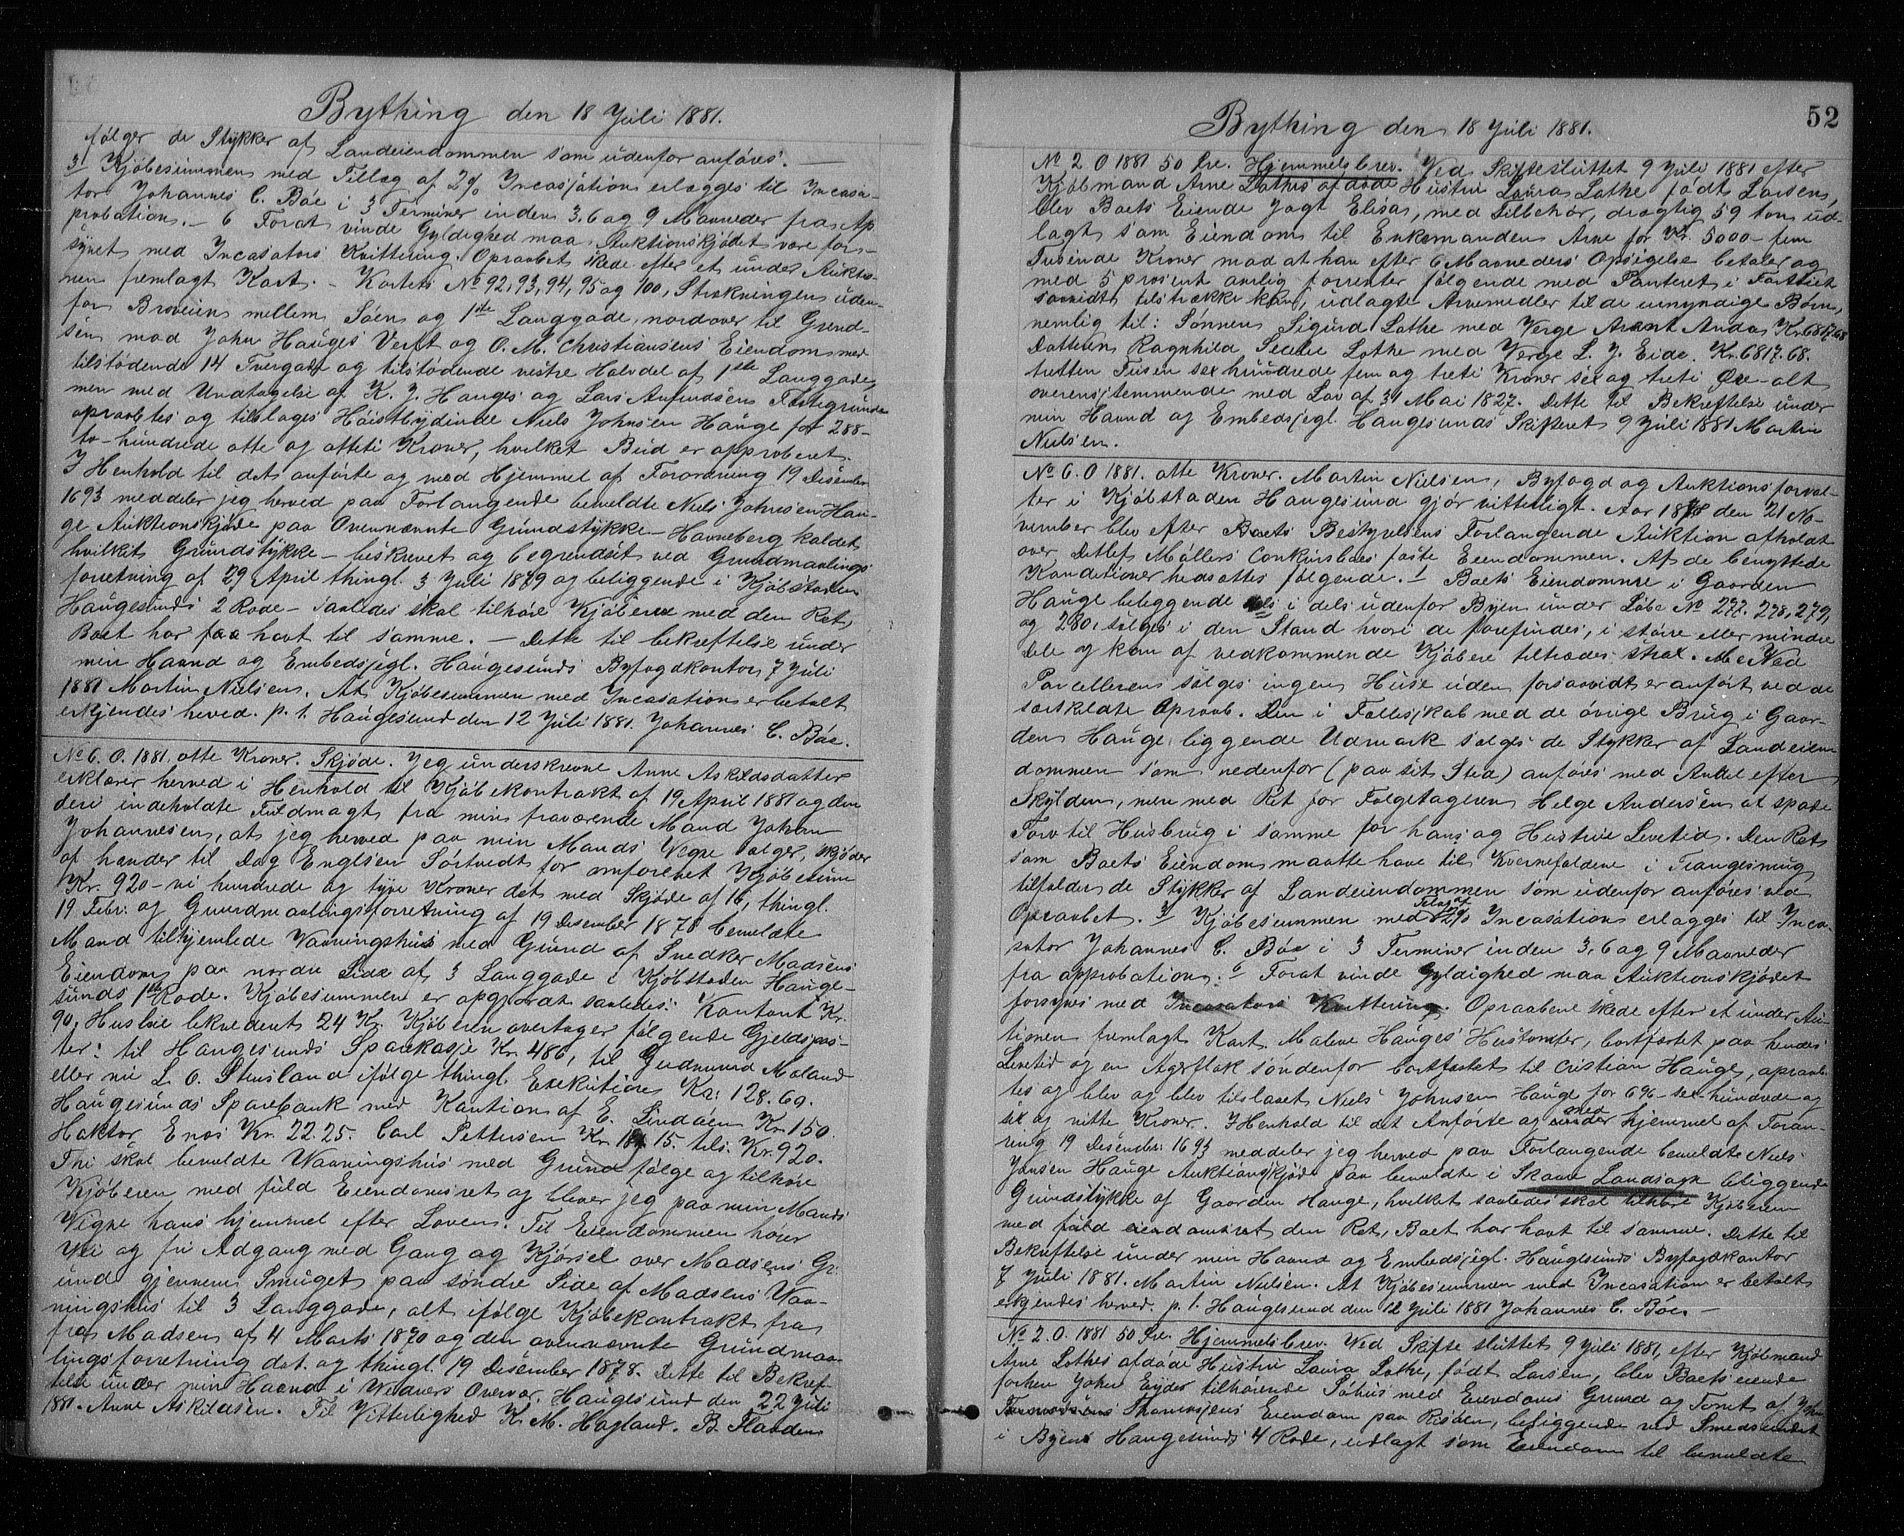 Bything den 18 Juli 1881.
følger de Stykker af Landeiendommen som udenfor anføres. —
3 Kjøbesummen med Tillæg af 2% Incassation erlægges til Incasa-
tor Johannes C. Böe i 3 Terminer inden 3. 6 og 9 Maaneder fra Ap
probation. – 6 Forat vinde Gyldighed maa Auktionskjødet være for-
synet med Incasators Kvittering. Opraabet skede efter et under Auktio-
nen fremlagt Kart. – Kartets No 92, 93, 94, 95 og 100, Strækningen uden-
for Broveien mellem Søen og 1ste Langgade, nordover til Grend-
sen mod John Hauges Verft og O. M. Christiansens Eiendom med
tilstødende 14 Tvergade og tilstødende vestre Halvdel af 1ste Langgade,
men med Undtagelse af K. J. Hauges og Lars Anfindsens Fæstegrunde
opraabtes og tilsloges Høistbydende Niels Johnsen Hauge for 288 –
to-hundrede otte og otteti Kroner, hvilket Bud er approberet.
I Henhold til det anførte og med Hjemmel af Forordning 19 Desember
1693 meddeler jeg herved paa Forlangende bemeldte Niels Johnsen Hau-
ge Auktionskjøde paa Ovennævnte Grundstykke – Havneberg kaldet
hvilket Grundstykke – beskrevet og begrendset ved Grundmaalings
forretning af 29 April thingl. 3 Juli 1879 og beliggende i Kjøbstaden
Haugesunds 2 Rode – saaledes skal tilhøre Kjøberen med den Ret,
Boet har havt til samme. – Dette til bekræftelse under
min Haand og Embedssegl. Haugesunds Byfogdkontor, 7 Juli
1881 Martin Nielsen. At Kjøbesummen med Incasation er betalt
erkjendes herved. p. t. Haugesund den 12 Juli 1881. Johannes C. Böe.
No 6. O. 1881. otte Kroner. Skjøde. Jeg underskrevne Anne Askildsdatter
erklærer herved i Henhold til Kjøbekontrakt af 19 April 1881 og den
deri indeholdte Fuldmagt fra min fraværende Mand Johan
Johannesen, at jeg herved paa min Mands Vegne sælger, skjøder
af hænder til Dag Englsen Sørtvedt for omforenet Kjøbesum
Kr. 920 – ni hundrede og tyve Kroner det med Skjøde af 16, thingl.
19 Febr. og Grundmaalingsforretning af 19 Desember 1878 bemeldte
Mand tilhjemlede Vaaningshus med Grund af Snedker Madsens
Eiendom paa nordre Side af 3 Langgade i Kjøbstaden Hauge-
sunds 1ste Rode. Kjøbesummen er opgjordt saaledes: Kontant Kr.
90, Husleie bekvedent 24 Kr. Kjøberen overtager følgende Gjeldspos-
ter: til Haugesunds Sparkasse Kr. 486, til Gudmund Moland
eller nu L. O. Stensland ifølge thingl. Exekution Kr: 128.60.
Haugesunds Sparebank med Kaution af E. Lindøen Kr. 150
Haktor Enæs Kr. 22.25. Carl Pettersen Kr. 15. tils. Kr. 920.
Thi skal bemeldte Vaaningshus med Grund følge og tilhøre
Kjøberen med fuld Eiendomsret og bliver jeg paa min Mands
Vegne hans hjemmel efter Loven. Til Eiendommen hører
Vei og fri Adgang med Gang og Kjørsel over Madsens Gr-
und gjennem Smuget paa søndre Side af Madsens Vaa-
ningshus til 3 Langgade, alt ifølge Kjøbekontrakt fra
fra Madsen af 4 Marts 1870 og den ovennævnte Grundmaa-
lingsforretning dat. og thingl. 19 Desember 1878. Dette til Bekræf-
telse under min Haand i Vidners Overvær. Haugesund den 22 Juli
1881. Anne Askildsen. Til Vitterlighed K. M. Hagland. B. Flaaden
52
Bything den 18 Juli 1881.
No 2. O 1881 50 Øre. Hjemmelsbrev. Ved Skiftesluttet 9 Juli 1881 efter
Kjøbmand Arne Lothes afdøde Hustru Laura Lothe født Larsen,
blev Boets Eiende Jagt Elisa, med Tilbehør, drægtig 59 tons ud-
lagt som Eiendom til Enkemanden Arne for Kr. 5000 – fem
Tusende Kroner mod at han efter 6 Maaneders Opsigelse betaler og
med 5 prosent aarlig forrenter følgende med Panteret i Fartøiet
saavidt tilstrække kan, udlagte Arvemidler til de umyndige Børn,
nemlig til: Sønnen Sigurd Lothe med Verge Arent Anda, Kr. 6817.68
Datteren Ragnhild Lothe med Verge L. J. Eide. Kr. 6817.68.
tretten Tusen sex hundrede fem og treti Kroner sex og treti Øre – alt
overensstemmende med Lov af 31 Mai 1827. Dette til Bekræftelse under
min Haand og Embedssegl. Haugesunds Skifteret 9 Juli 1881 Martin
Nielsen.
No 6. O 1881. otte Kroner. Martin Nielsen, Byfogd og Auktionsforval-
ter i Kjøbstaden Haugesund gjør vitterligt. Aar 1878 den 21 No-
vember blev efter Boets Bestyrelsens Forlangende Auktion afholdt
over Detlef Møllers Conkursboes faste Eiendommen. Af de benyttede
Konditioner hedsættes følgende. 1 Boets Eiendomme i Gaarden
Hauge beliggende dels i dels udenfor Byen under Løbe No 277. 278, 279,
og 280, sælges i den Stand hvori de forefindes, i større eller mindre
Dele og kan af vedkommende Kjøbere tiltrædes strax. Med
Parcellerens sælges ingen Huse uden forsaavidt er anført ved de
særskildte Opraab. Den i Fællesskab med de øvrige Brug i Gaar-
den Hauge liggende Udmark sælges de Stykker af Landeien
dommen som nedenfor (paa sit Sted) anføres med Andel efter
Skylden, men med Ret for Følgetageren Helge Andersen at spade
Torv til Husbrug i samme for hans og Hustrues Levetid. Den Ret
som Boets Eiendom maatte have til Kvernefaldene i Trangesmug
tilfalder de Stykker af Landeiendommen som udenfor anføres ved
Opraabet. 3 Kjøbesummen med Tillæg af 2% Incasation erlægges til Inca-
sator Johannes C. Böe i 3 Terminer inden 3. 6 og 9 Maaneder
fra approbation. 6 Forat vinde Gyldighed maa Auktionskjødet
forsynes med Incasators Kvittering. Opraabene skede efter et under Auk-
tionen fremlagt Kart. Malene Hauges Hustomter, bortfæstet paa hendes
Levetid og en Agerflæk søndenfor bortfæstet til Cristian Hauge, opraab-
tes og blev og blev tilslaaet Niels Johnsen Hauge for 696 – sex hundrede og
sex og nitti Kroner. I Henhold til det Anførte og med hjemmel af Foran-
ring 19 Desember 1693 meddeler jeg herved paa Forlangende bemeldte Niels
Jonsen Hauge Auktionskjøde paa bemeldte i Skaare Landsogn beliggende
Grundstykke af Gaarden Hauge, hvilket saaledes skal tilhøre Kjøberen
med fuld eiendomsret den Ret, Boet har havt til samme. Dette til
Bekræftelse under min Haand og Embedssegl. Haugesunds Byfogdkontor
7 Juli 1881. Martin Nielsen. At Kjøbesummen med Incasation er betalt
erkjendes herved. p. t. Haugesund den 12 Juli 1881 Johannes C. Böe. –
No 2. O. 1881 50 Øre. Hjemmelsbrev. Ved Skifte sluttet 9 Juli 1881, efter Kjøbmand
Arne Lothes afdøde Hustru Laura Lothe, født Larsen, blev Boets eiende
forhen John Eyder tilhørende Søhus med Eiendoms Grund og Tomt af John
Thomassens Eiendom paa Risøen, beliggende ved Smedesundet
i Byen Haugesunds 4 Rode, udlagt som Eiendom til bemeldte